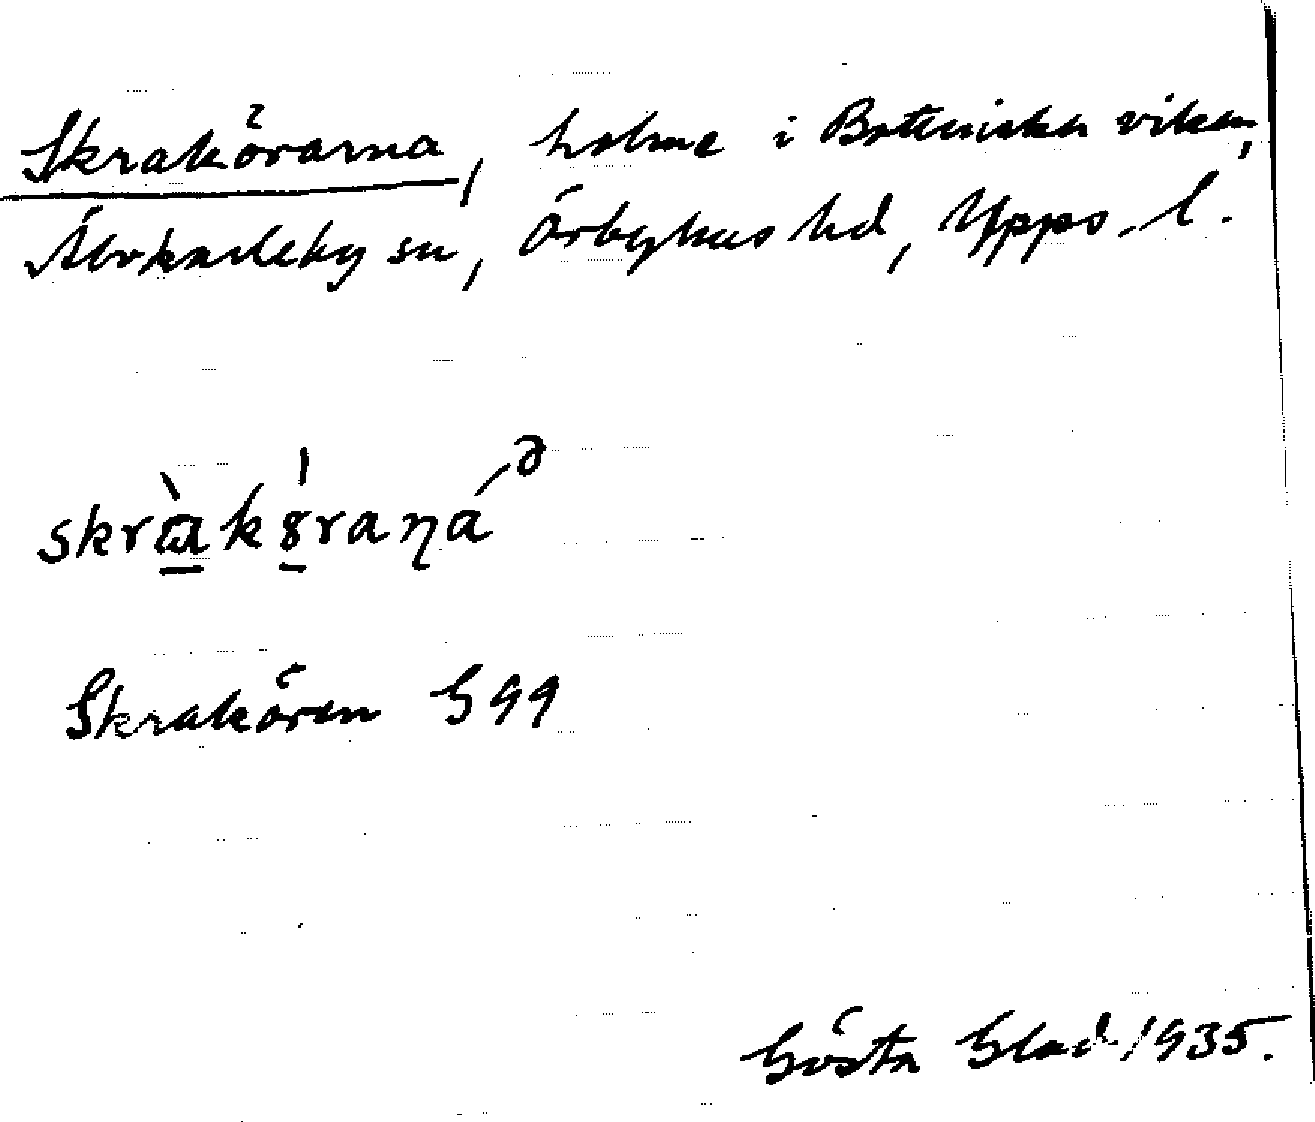 Skrakörarna, holme i Bottniska viken,
Älvkarleby sn, Örbyhus hd, Upps. l.
skrɷ̀kɵ́raɳá, ə
Skrakören G 99
Gösta Glad 1935.